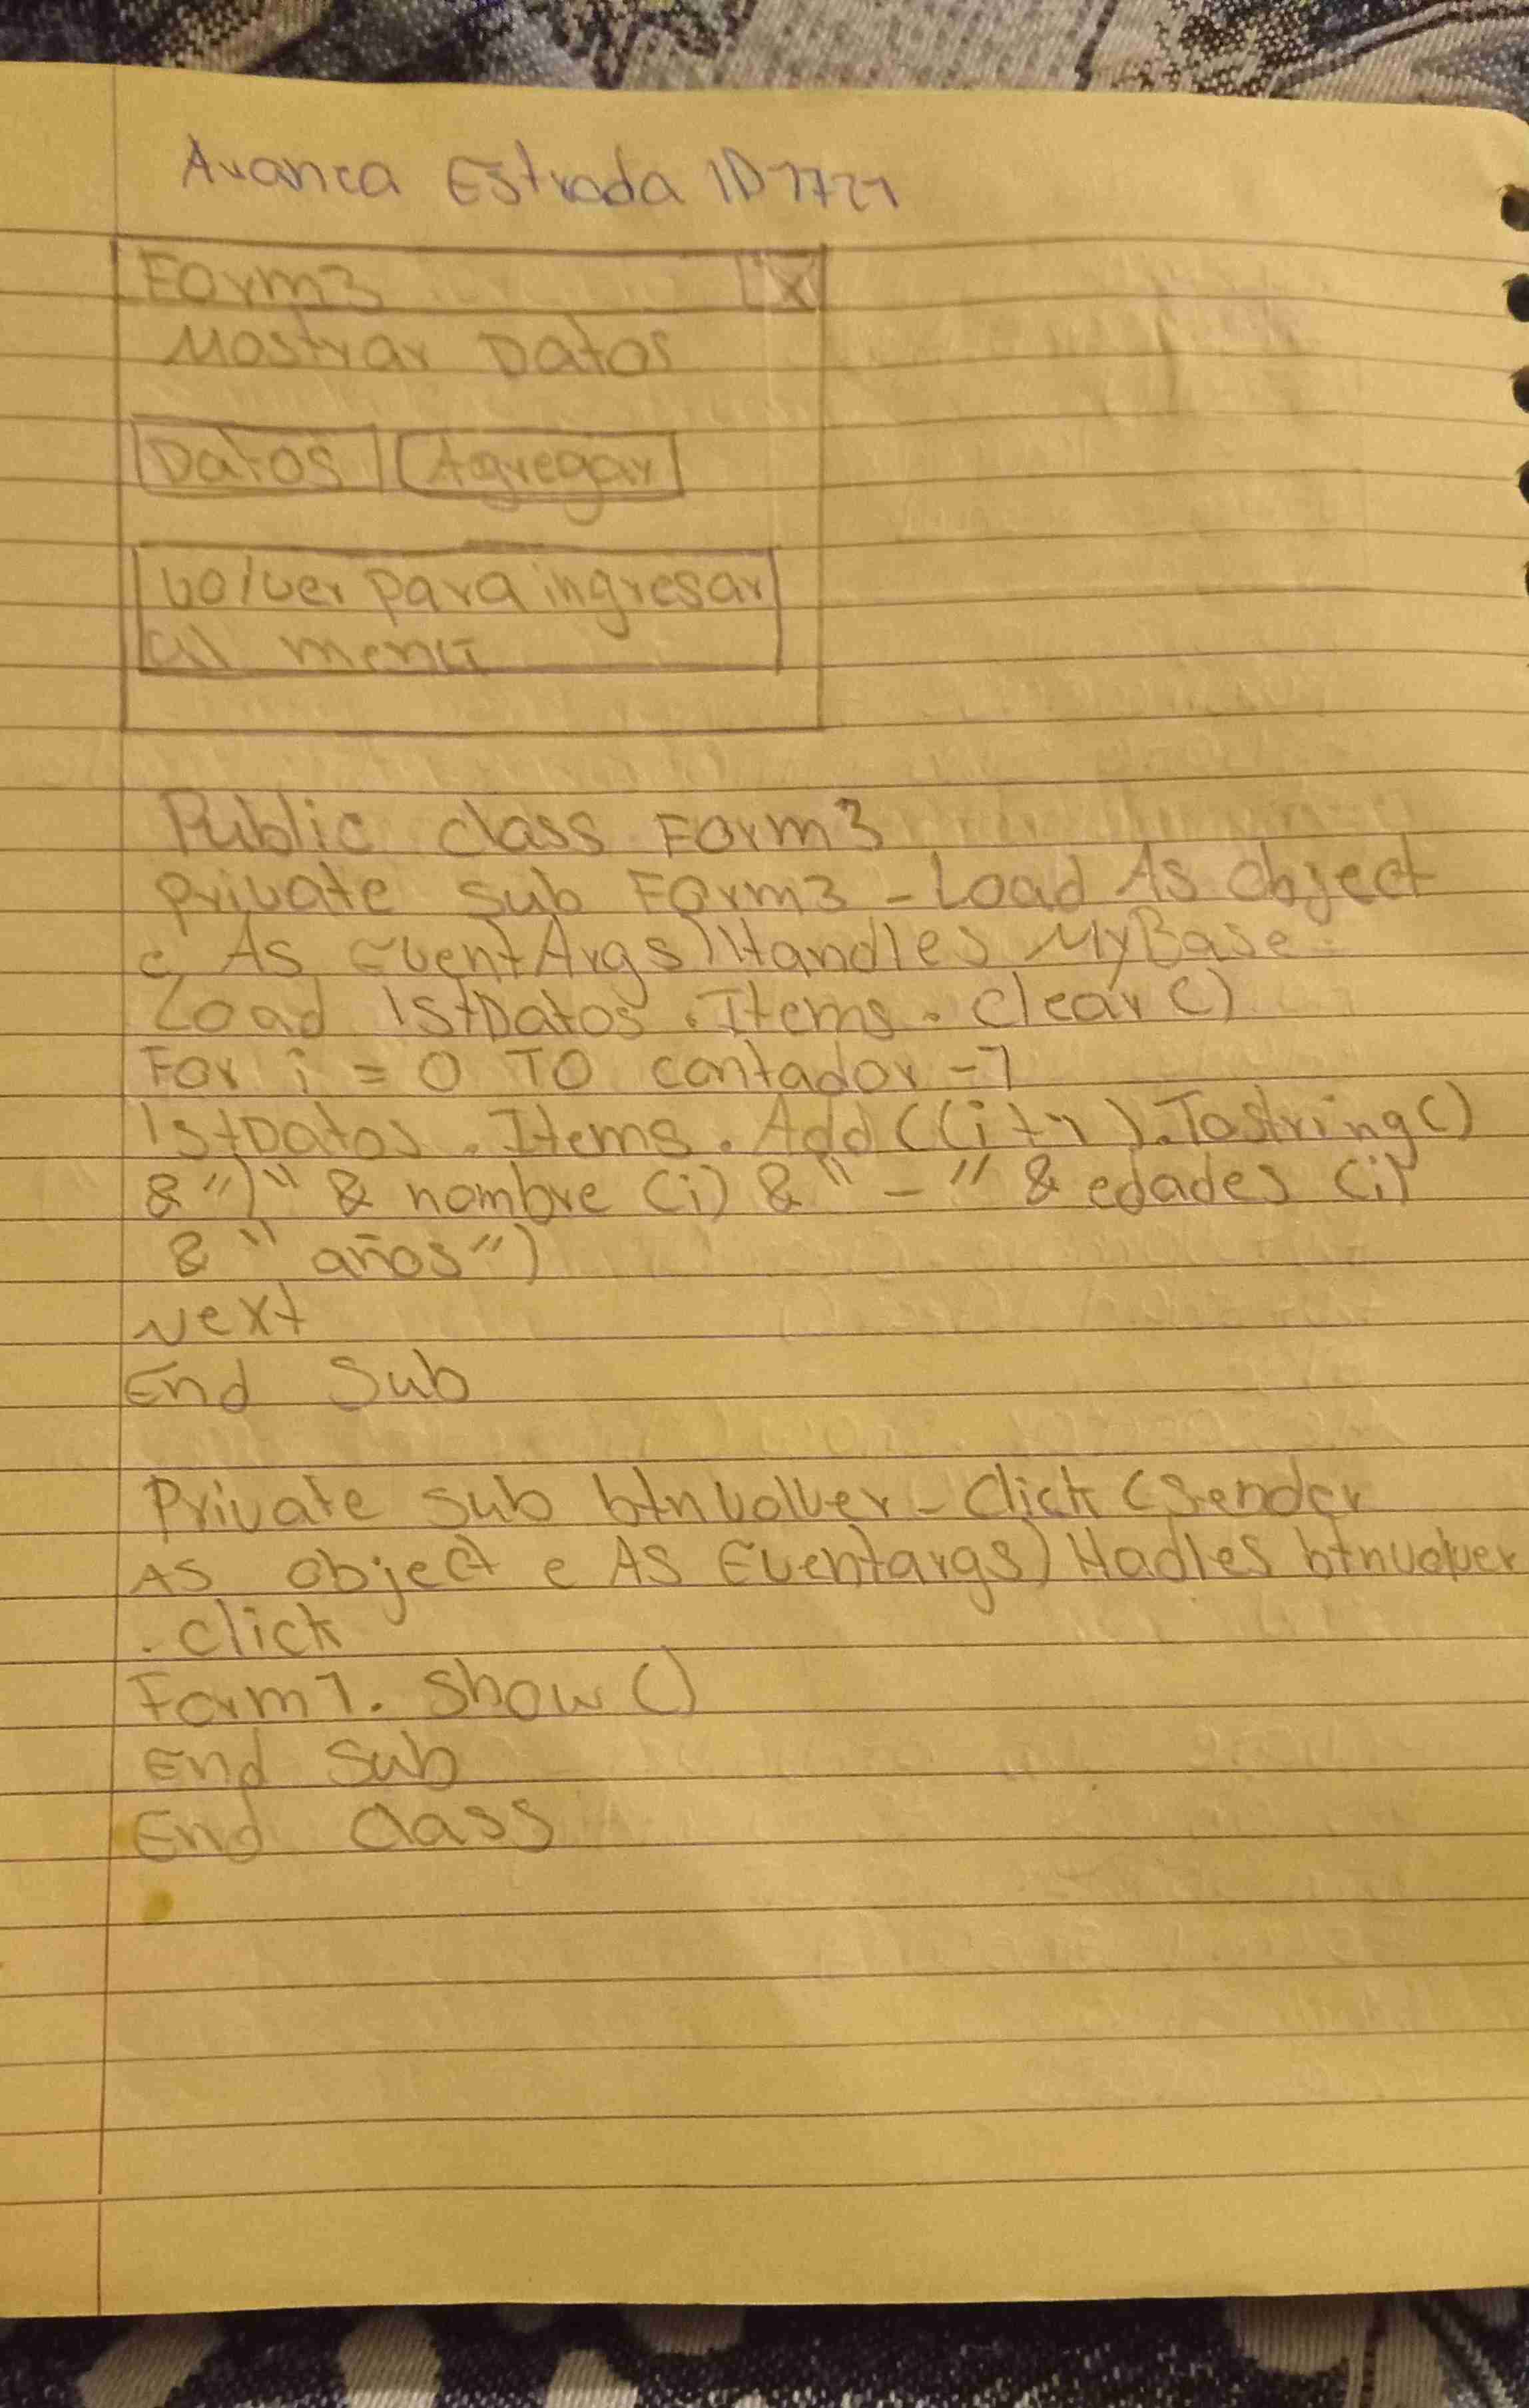 Avanca Estrada 1D1721
Form3 X
Mostrar Datos
Datos Agregar
Volver para ingresar
al menú
Public class Form3
Private Sub Form3 - Load As Object
e, As EventArgs) Handles MyBase.
Load lstDatos . Items . Clear ()
For i = 0 TO contador -1
lstDatos . Items . Add ((i + 1) . Tostring ()
& ")" & nombre (i) & " - " & edades (i)
& " años")
Next
End Sub
Private Sub btnvolver - Click (Sender
As object e As Eventargs) Hadles btnvolver
. click
Form1. Show ()
End Sub
End Class